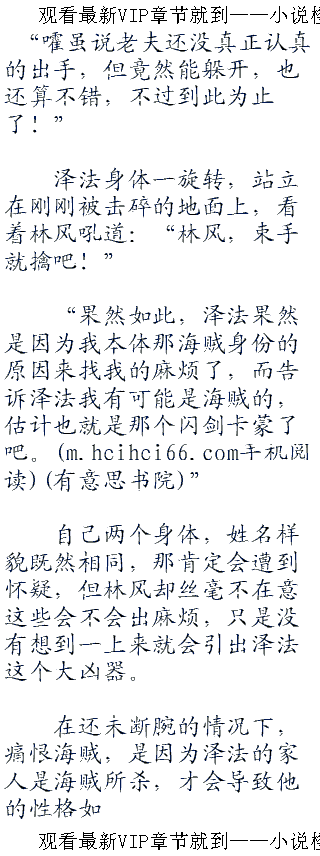 观看最新VIP章节就到——小说
“嚯虽说老夫还没真正认真
的出手，但竟然能躲开，也
还算不错，不过到此为止
了！”
泽法身体一旋转，站立
在刚刚被击碎的地面上，看
着林风吼道：“林风，束手
就擒吧！”
“果然如此，泽法果然
是因为我本体那海贼身份的
原因来找我的麻烦了，而告
诉泽法我有可能是海贼的，
估计也就是那个闪剑卡蒙了
吧。(m.hcihci66.com手机阅
读)(有意思书院)”
自己两个身体，姓名样
貌既然相同，那肯定会遭到
怀疑，但林风却丝毫不在意
这些会不会出麻烦，只是没
有想到一上来就会引出泽法
这个大凶器。
在还未断腕的情况下，
痛恨海贼，是因为泽法的家
人是海贼所杀，才会导致他
的性格如
观看最新VIP章节就到——小说